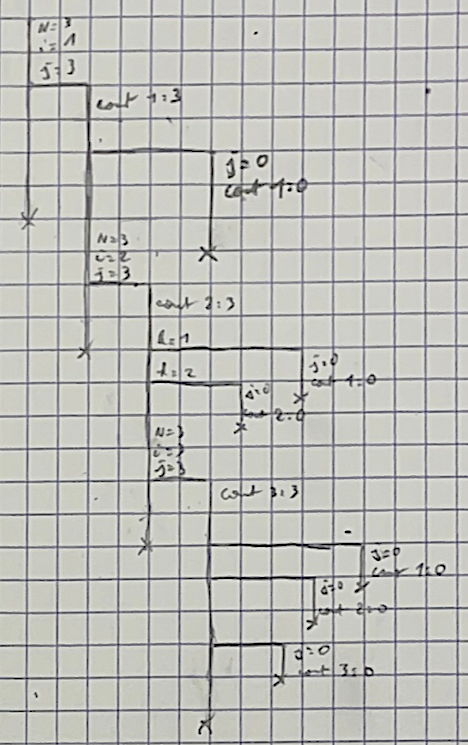 N=3
i=1
j=3
cout 1:3
j=0
cout 1:0
N=3
i=2
j=3
cout 2:3
k=1
j=0
cout 1:0
k=2
j=0
cout 2:0
N=3
i=3
j=3
cout 3:3
j=0
cout 1:0
j=0
cout 2:0
j=0
cout 3:0